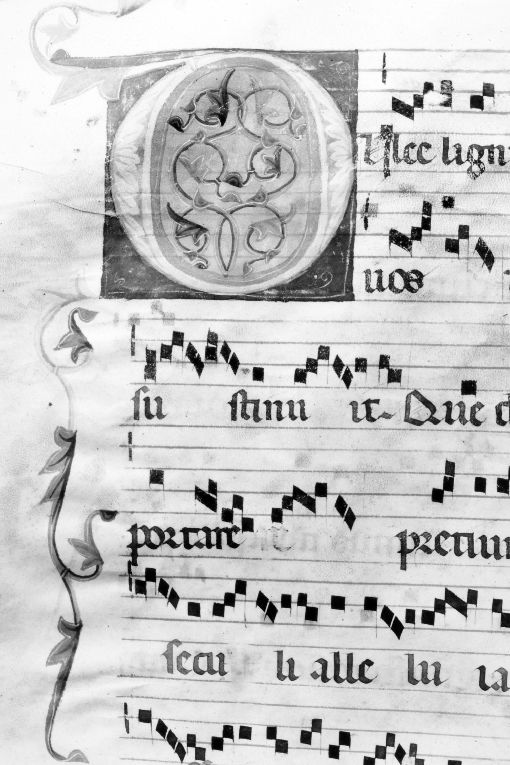 Dulce lign
uos
su stinu it. Que
portare pretiu
secu li alle lu ia